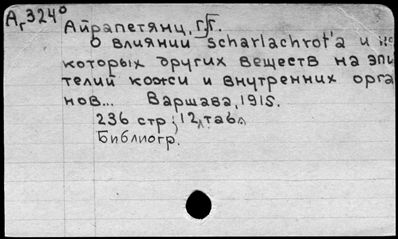 Аг324⁰
Айрапетянц, Г.Г.
О влиянии Scharlachrot'а и не
которых других веществ на эпи
телий кожи и внутренних орга
нов... Варшава, 1915.
236 стр; 12 табл.
Библиогр.